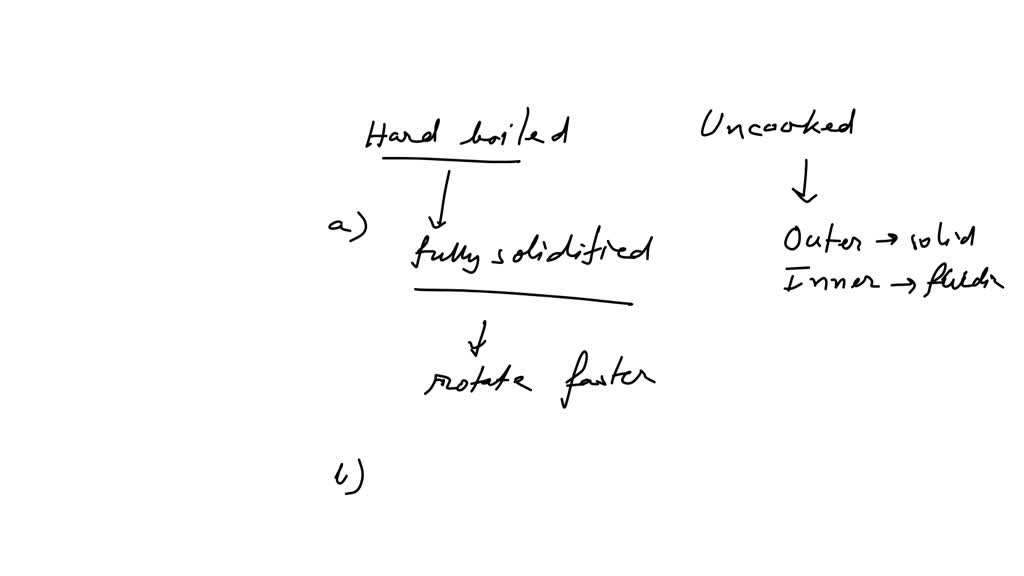 Hard boiled
Uncooked
a)
fully solidified
Outer → solid
Inner → fluidic
rotate faster
b)